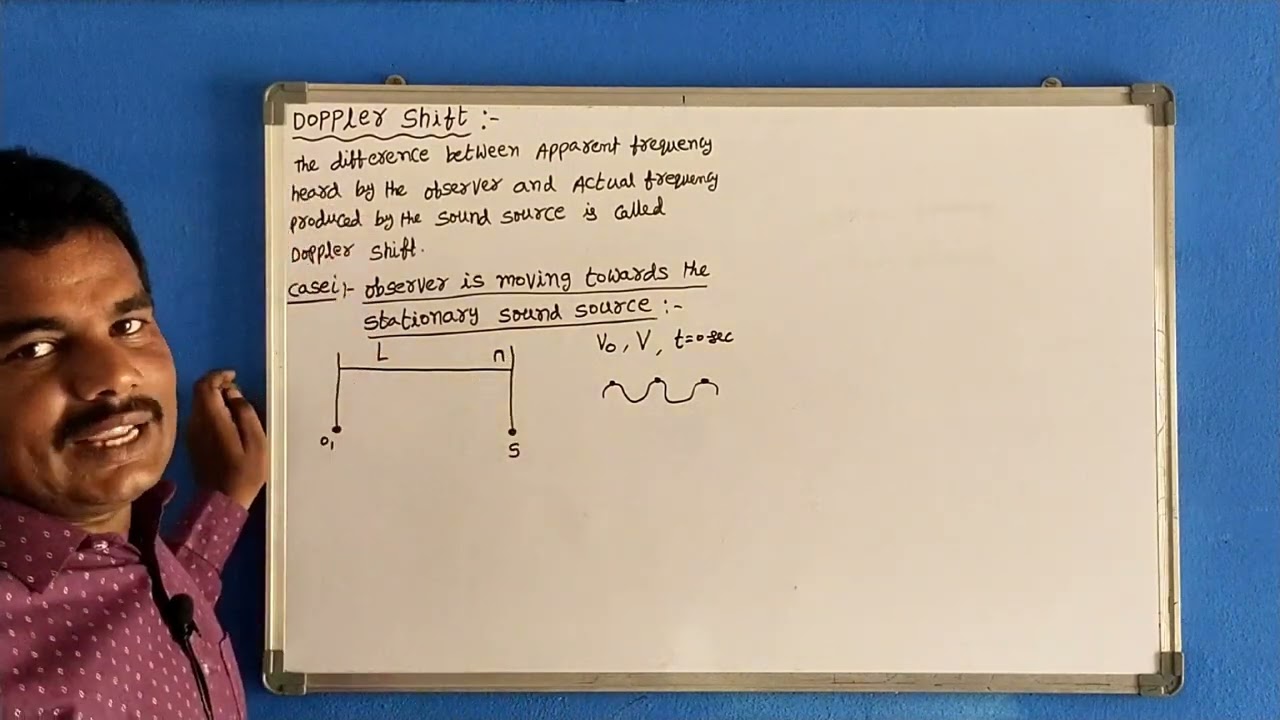 Doppler Shift :-
The difference between Apparent frequency
heard by the observer and Actual frequency
produced by the sound source is called
Doppler shift.
Casei :- observer is moving towards the
stationary sound source :-
V₀, V, t=0 sec
L n
O₁ S